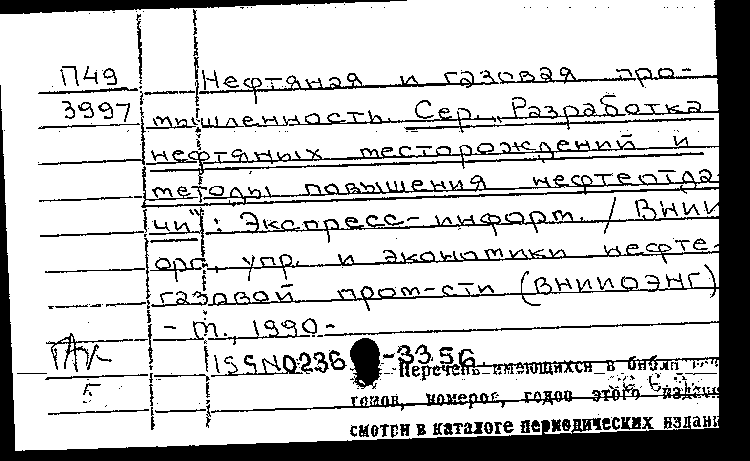 П49
3997
Нефтяная и газовая про-
мышленность. Сер. „Разработка
нефтяных месторождений и
методы повышения нефтеотда-
чи": Экспресс-информ. / ВНИИ
орг., упр. и экономики нефте-
газовой пром-сти (ВНИИОЭНГ)
- М., 1990-
ISSN0236-3356.
5
Перечень имеющихся в
томов, номеров, годов этого
смотри в каталоге периодических